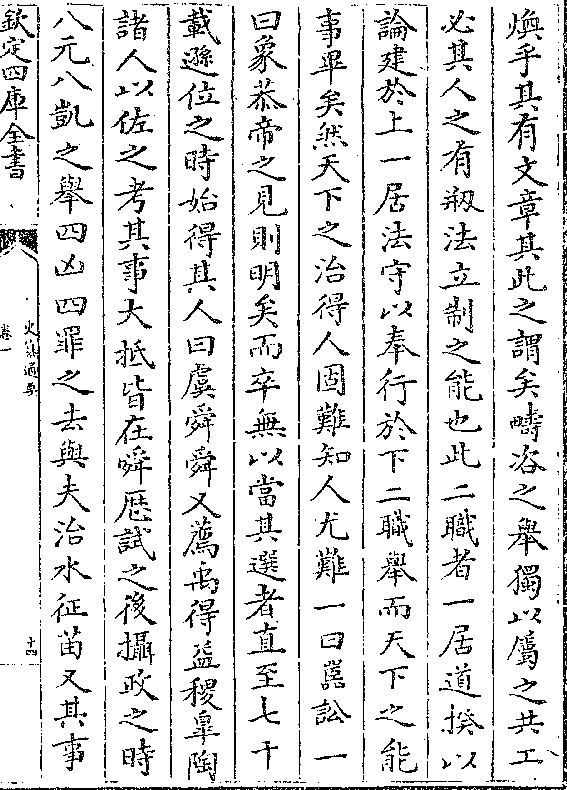 煥乎其有文章其此之謂矣疇咨之舉獨以屬之共工
必其人之有剏法立制之能也此二職者一居道揆以
論建於上一居法守以奉行於下二職舉而天下之能
事畢矣然天下之治得人固難知人尤難一曰嚚訟一
曰象恭帝之見則明矣而卒無以當其選者直至七十
載遜位之時始得其人曰虞舜舜又薦禹得益稷臯陶
諸人以佐之考其事大抵皆在舜歴試之後攝政之時
八元八凱之舉四凶四罪之去與夫治水征苗又其事
欽定四庫全書
史纂通要
卷一
十四